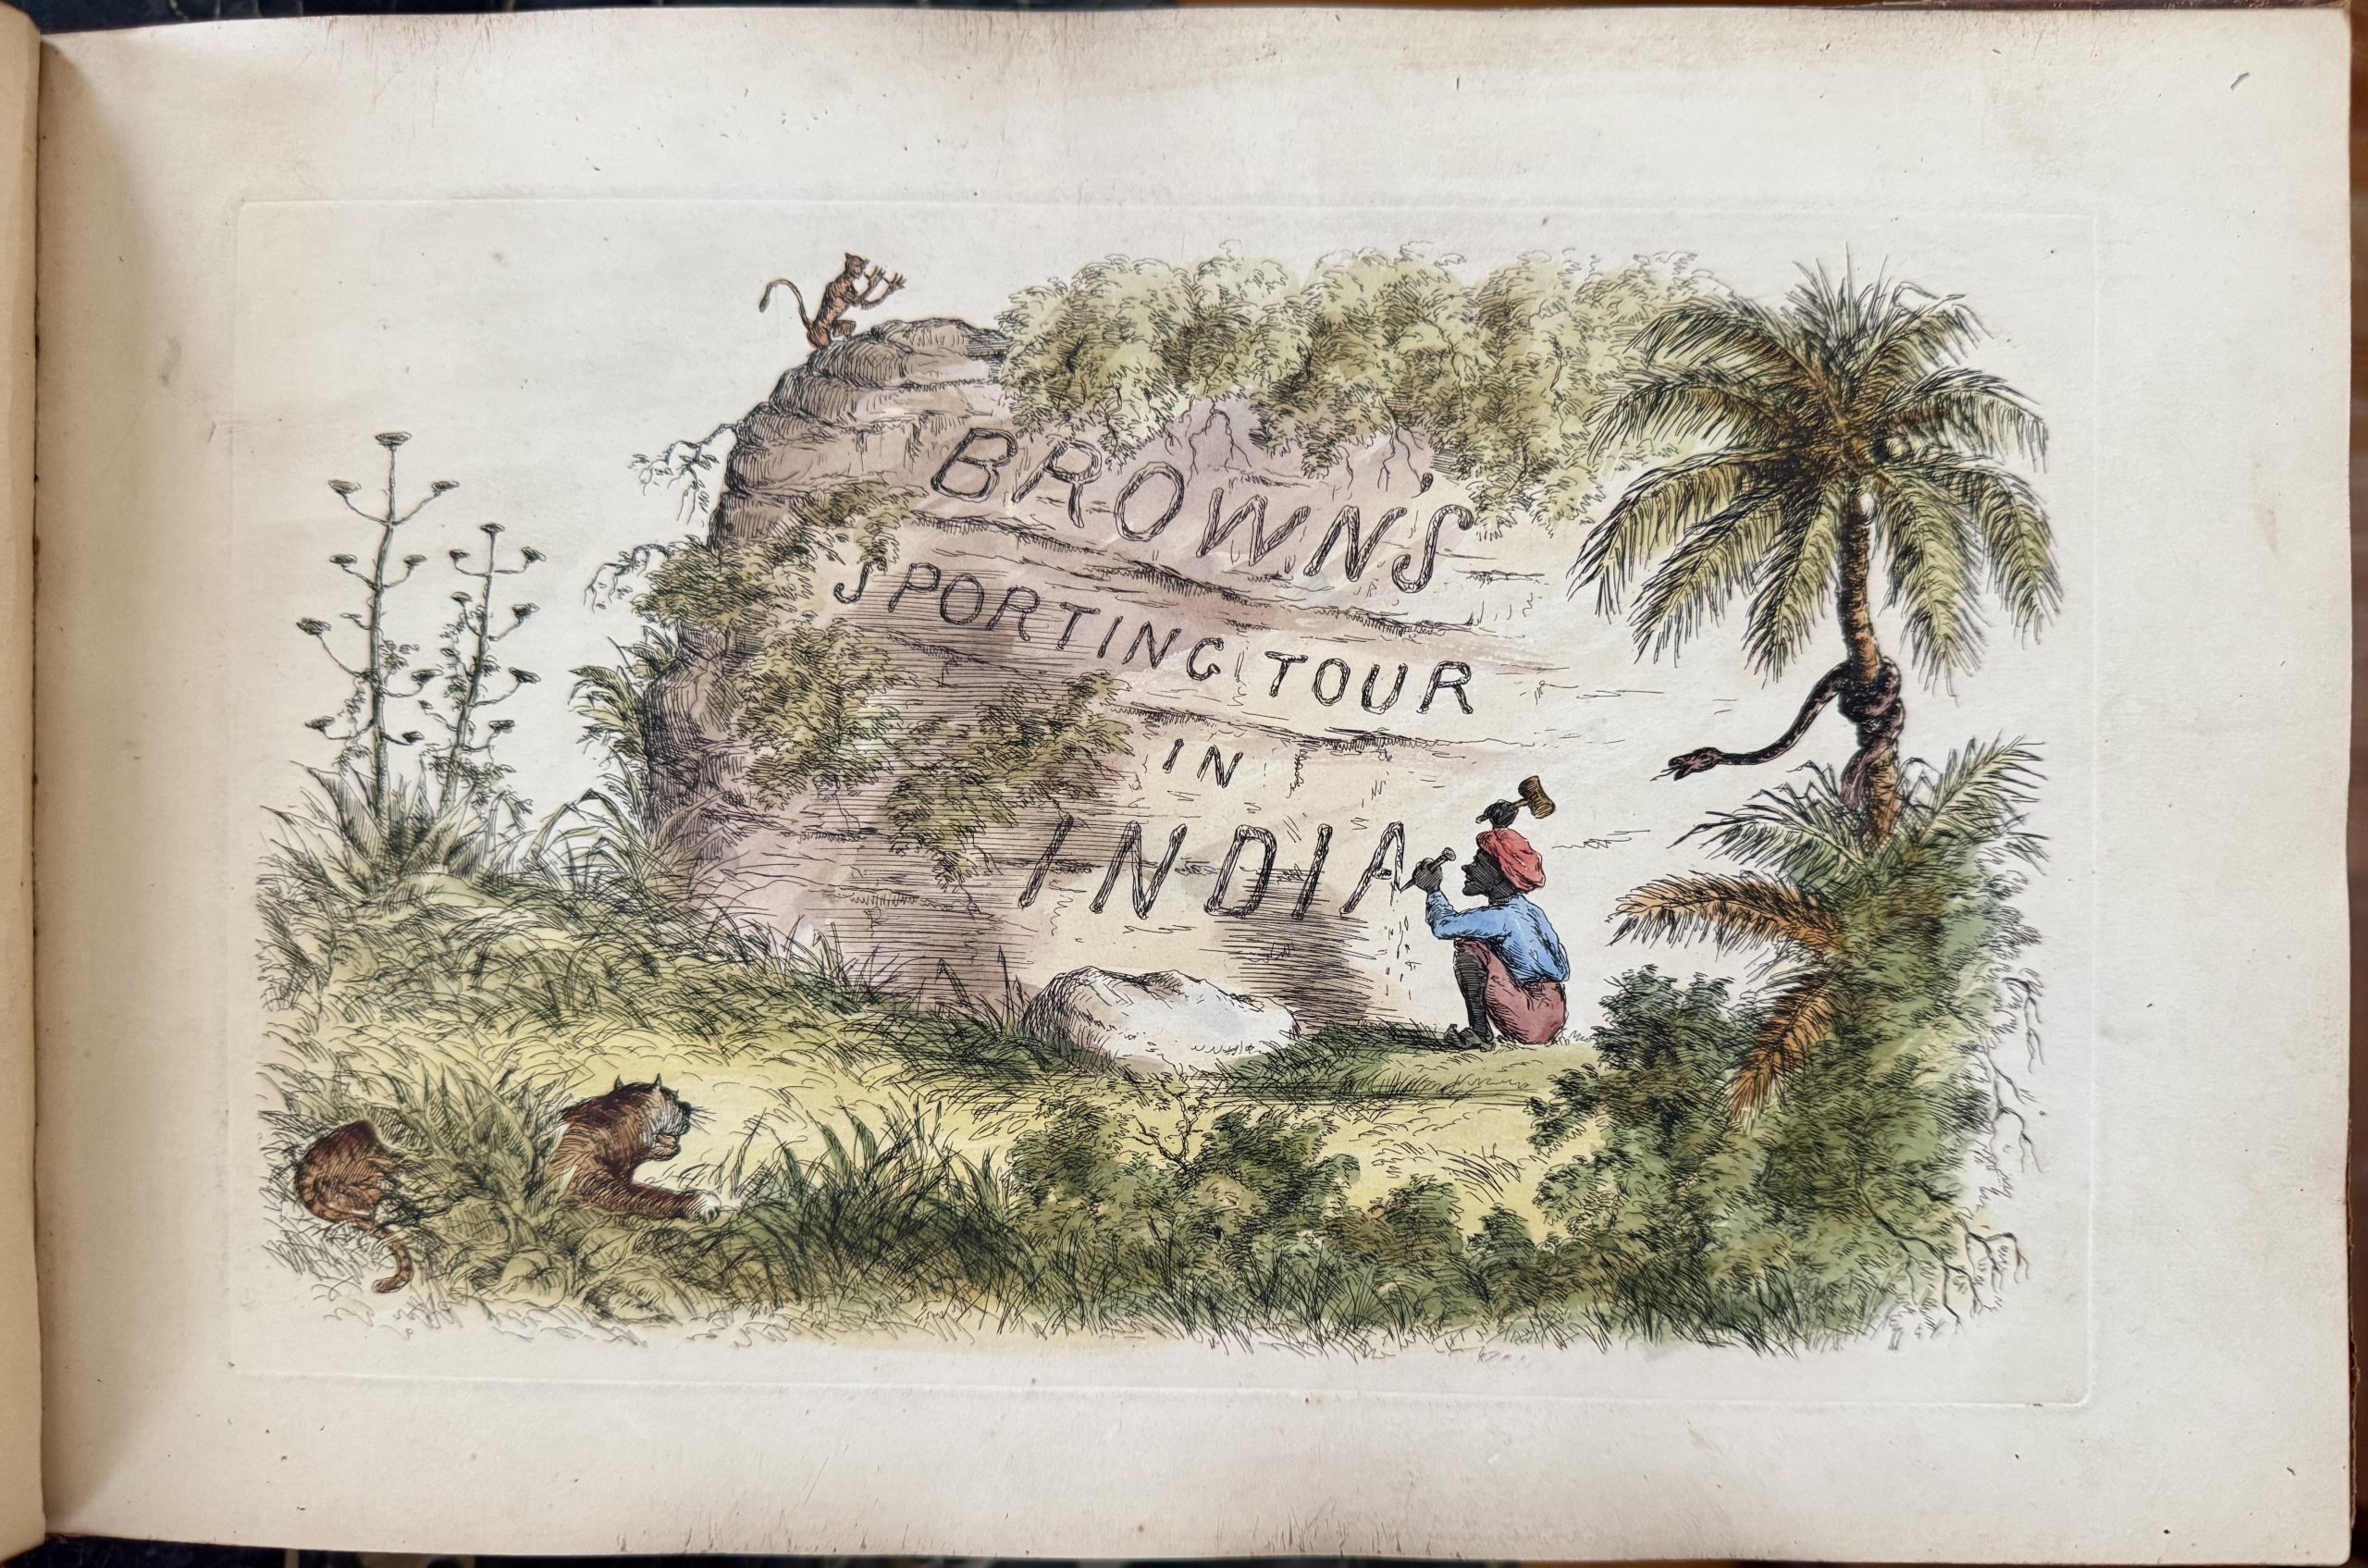 BROWN'S
SPORTING TOUR
IN
INDIA